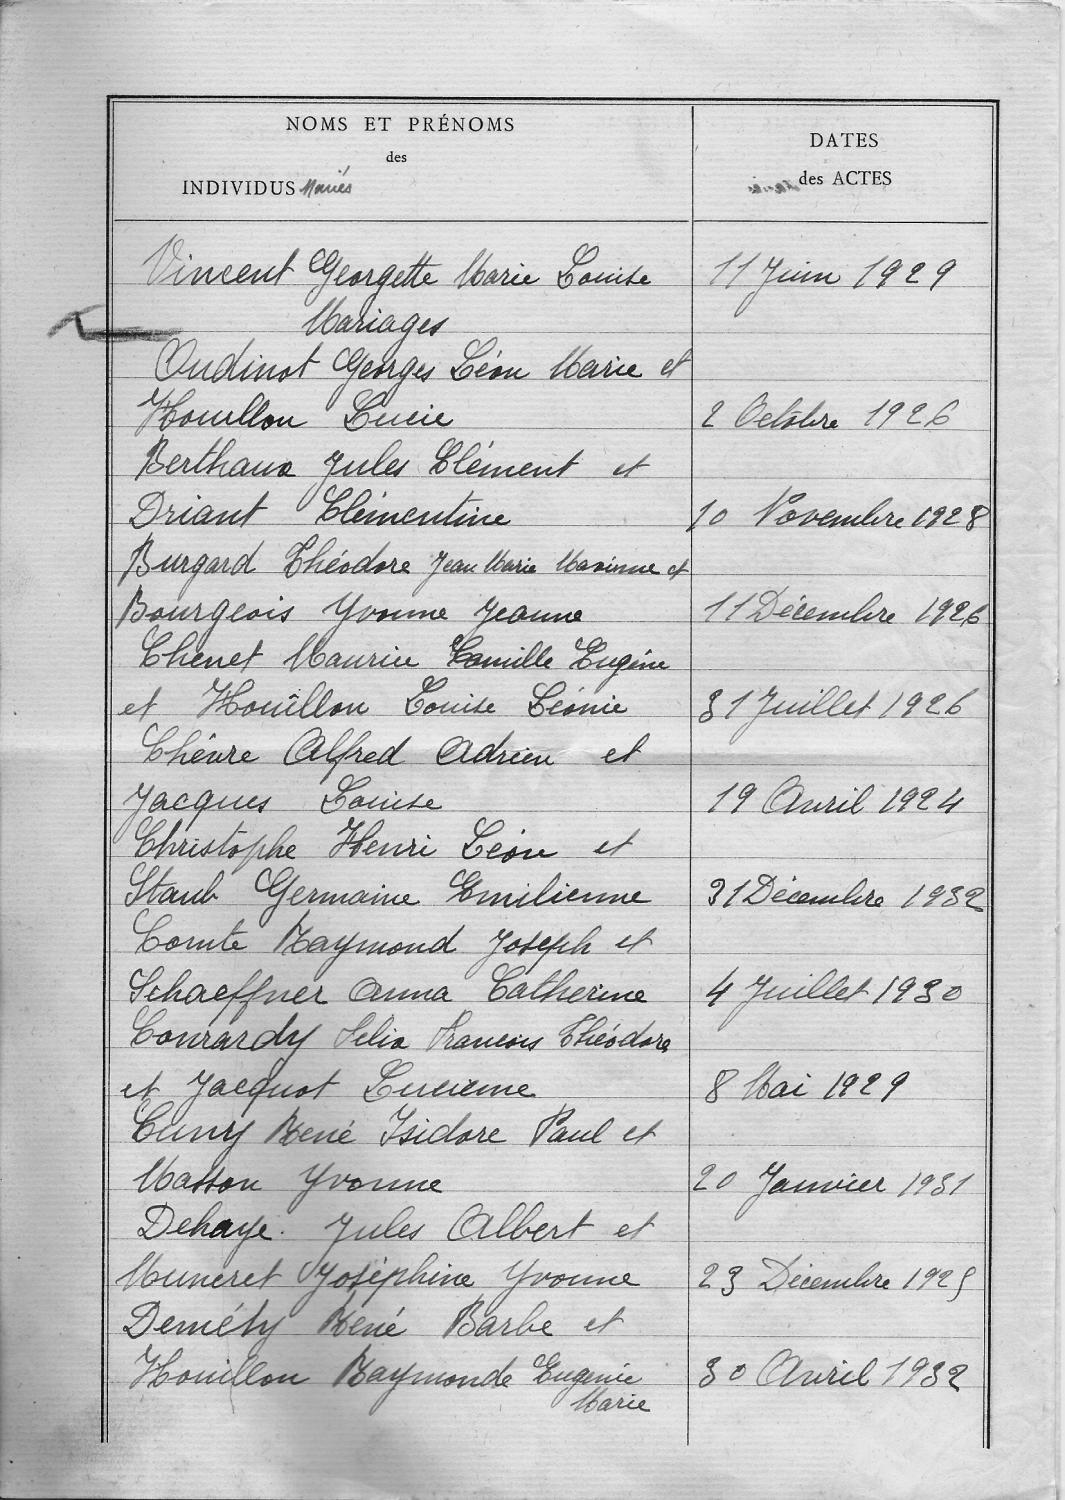 NOMS ET PRÉNOMS
des
INDIVIDUS Mariés
DATES
des ACTES
Vincent Georgette Marie Louise 11 Juin 1929
Mariages
Oudinot Georges Léon Marie et
Houillon Lucie 2 Octobre 1926
Berthaux Jules Clément et
Driant Clémentine 10 Novembre 1928
Burgard Théodore Jean Marie Maximme et
Bourgeois Yvonne Jeanne 11 Décembre 1926
Chenet Maurice Camille Eugène
et Houillon Louise Léonie 31 Juillet 1926
Chèvre Alfred Adrien et
Jacques Louise 19 Avril 1924
Christophe Henri Léon et
Staub Germaine Emilienne 31 Décembre 1932
Comte Raymond Joseph et
Schaeffner Anna Catherine 4 Juillet 1930
Conrardy Félix François Théodore
et Jacquot Lucienne 8 Mai 1929
Cuny René Isidore Paul et
Masson Yvonne 20 Janvier 1931
Dehaye. Jules Albert et
Muneret Joséphine Yvonne 23 Décembre 1925
Deméty René Barbe et
Houillon Raymonde Eugénie 30 Avril 1932
Marie